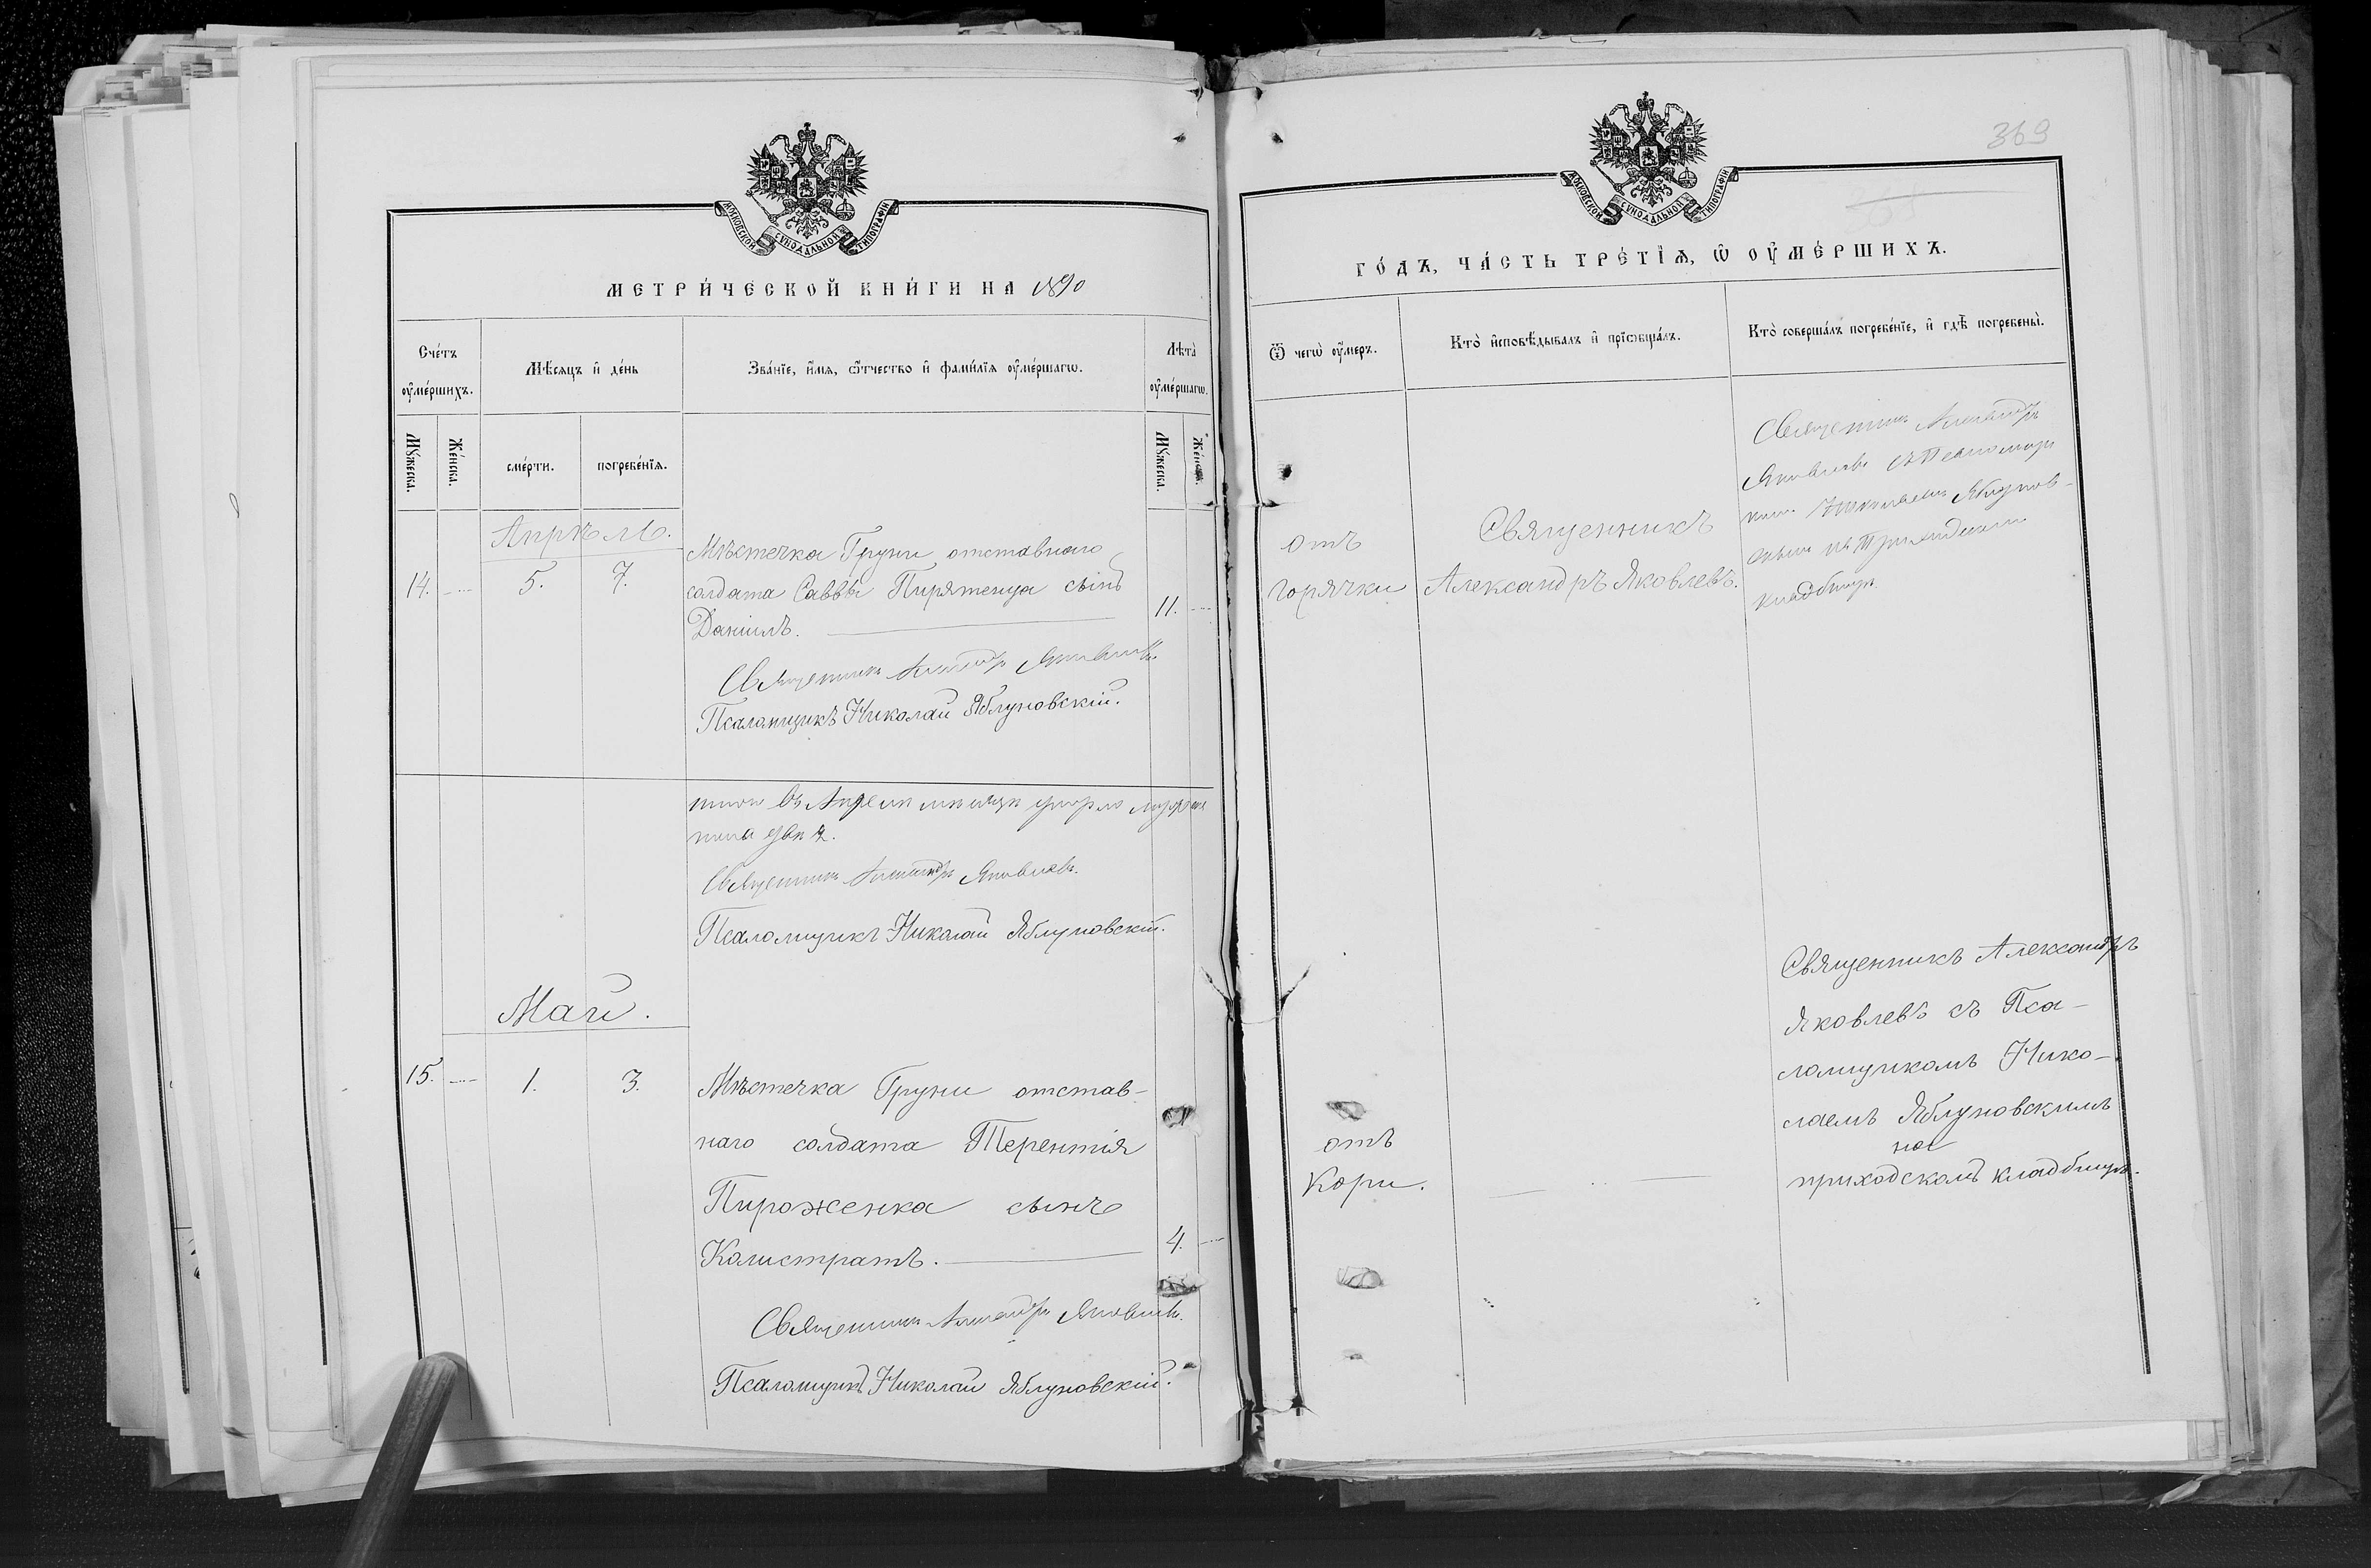 369
МОСКОВСКОЙ СѴНОДАЛЬНОЙ ТИПОГРАФІИ
МЕТРИ́ЧЕСКОЙ КНИ́ГИ НА 1890
Сче́тъ ᲂу҆ме́ршихъ.
Мѣ́сяцъ и҆ де́нь
Зва́нїе, и҆́мѧ, ѻ҆́тчество и҆ фами́лїѧ ᲂу҆ме́ршагѡ.
Лѣ́та ᲂу҆ме́ршагѡ.
Мꙋ́жеска.
Же́нска.
сме́рти.
погребе́нїѧ.
Мꙋ́жеска.
Же́нска.
Апрѣль.
14.
5.
7.
Мѣстечка Груни отставнаго
солдата Саввы Пирятенца сынъ
Даніилъ.
11.
Священникъ Александръ Яковлевъ
Псаломщикъ Николай Яблуновскій.
въ Апрелѣ мѣсяцѣ умерло мужеска
пола
Священникъ Александръ Яковлевъ.
Псаломщикъ Николай Яблуновскій.
Май.
15.
1.
3.
Мѣстечка Груни отстав-
наго солдата Терентія
Пироженка сынъ
Калистратъ.
4.
Священникъ Александръ Яковлевъ.
Псаломщикъ Николай Яблуновскій.
МОСКОВСКОЙ СѴНОДАЛЬНОЙ ТИПОГРАФІИ
ГО́ДЪ, ЧА́СТЬ ТРЕ́ТЇѦ, Ѽ ОУ҆МЕ́РШИХЪ.
Ѿ чегѡ̀ ᲂу҆́меръ.
Кто̀ и҆сповѣ́дывалъ и҆ прїѡбща́лъ.
Кто̀ соверша́лъ погребе́нїе, и҆ гдѣ̀ погребены̀.
отъ
горячки
Священникъ
Александръ Яковлевъ.
Священникъ Александръ
Яковлевъ съ Псаломщи
комъ Николаемъ Яблунов-
скимъ на Приходскомъ
кладбищѣ.
отъ
Кори.
Священникъ Александръ
Яковлевъ съ Пса-
ломщикомъ Нико-
лаемъ Яблуновскимъ
на
приходскомъ кладбищѣ.